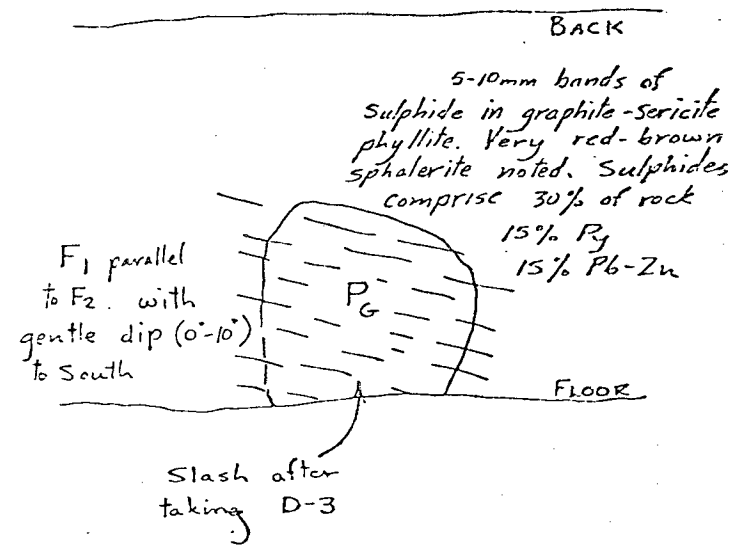 BACK
5-10mm bands of
sulphide in graphite-sericite
phyllite. Very red-brown
sphalerite noted. Sulphides
comprise 30% of rock
15% Py
15% Pb-Zn
F1 parallel
to F2. with
gentle dip (0°-10°)
to South
PG
FLOOR
Slash after
taking D-3